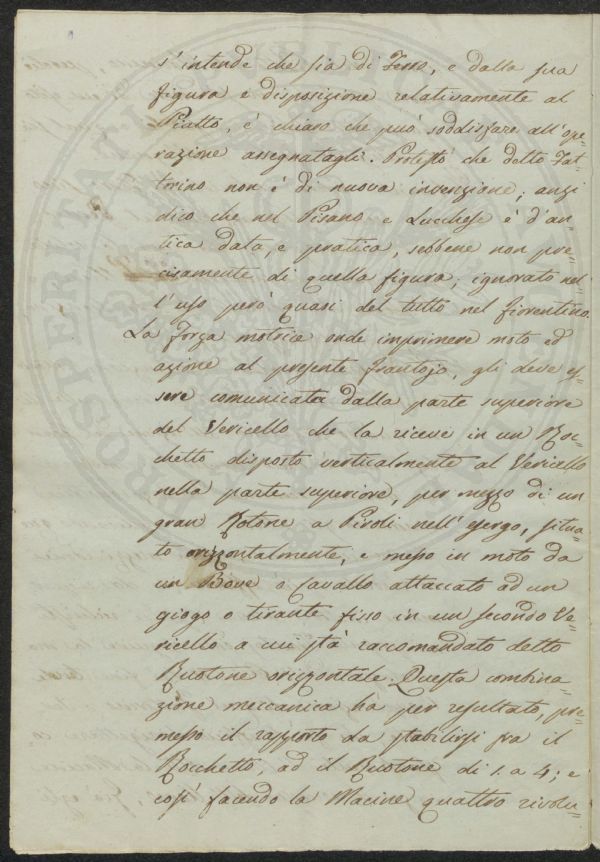 s'intende che sia di Ferro, e dalla sua
figura e disposizione relativamente al
Piatto, è chiaro che può soddisfare all'ope=
razione assegnatagli. Protesto che detto Fat=
torino non è di nuova invenzione; anzi
dico che nel Pisano e Lucchese è d'an=
tica data, e pratica, sebbene non pre=
cisamente di quella figura, ignorato nel=
l'uso però quasi del tutto nel fiorentino.
La Forza motrice onde imprimere moto ed
azione al presente Frantojo, gli deve es=
sere comunicata dalla parte superiore
del Vericello che la riceve in un Roc=
chetto disposto verticalmente al Vericello
nella parte superiore, per mezzo di un
gran Rotone a Piroli nell'esergo, situa=
to orizzontalmente, e messo in moto da
un Bove o Cavallo attaccato ad un
giogo o tirante fisso in un secondo Ve=
ricello a cui stà raccomandato detto
Ruotone orizzontale. Questa combina=
zione meccanica ha per resultato, pre=
messo il rapporto da stabilirsi fra il
Rocchetto, ad il Ruotone di 1. a 4; e
così facendo la Macine quattro rivolu=
PROSPERITATI